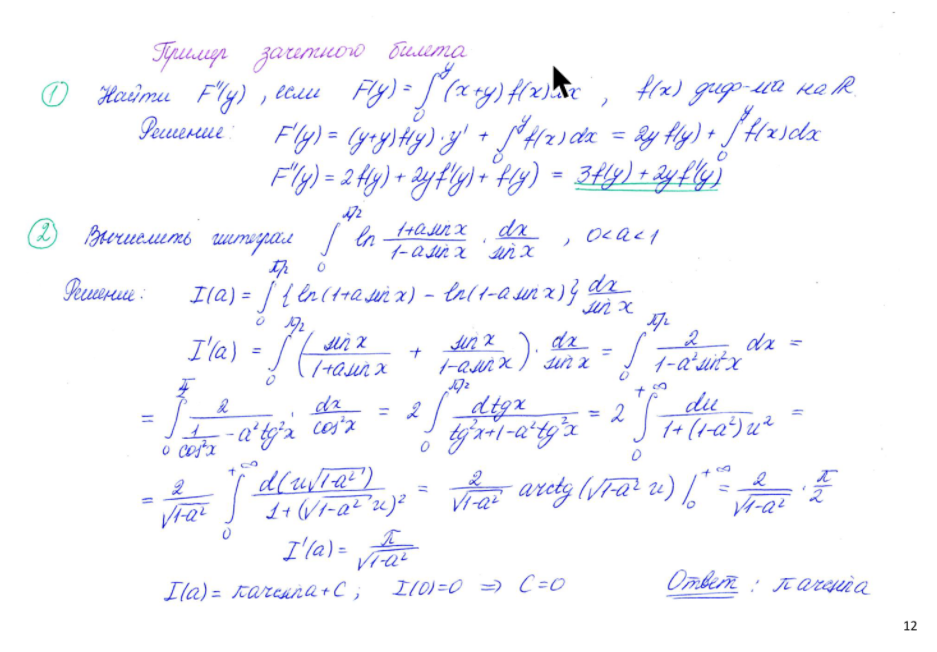 Пример зачетного билета
① Найти F''(y), если F(y) = ∫₀^y (x+y) f(x) dx, f(x) диф-ма на ℝ.
Решение: F'(y) = (y+y)f(y)·y' + ∫₀^y f(x)dx = 2y f(y) + ∫₀^y f(x)dx
F''(y) = 2f(y) + 2yf'(y) + f(y) = 3f(y) + 2yf'(y)
② Вычислить интеграл ∫₀^{π/2} ln (1+a sin x)/(1-a sin x) · dx/sin x, 0<a<1
Решение: I(a) = ∫₀^{π/2} {ln(1+a sin x) - ln(1-a sin x)} dx/sin x
I'(a) = ∫₀^{π/2} (sin x/(1+a sin x) + sin x/(1-a sin x)) · dx/sin x = ∫₀^{π/2} 2/(1-a² sin² x) dx =
= ∫₀^{π/2} 2/(1/cos²x - a² tg²x) · dx/cos²x = 2 ∫₀^{π/2} dtgx/(tg²x+1-a²tg²x) = 2 ∫₀^{+∞} du/(1+(1-a²)u²) =
= 2/√(1-a²) ∫₀^{+∞} d(u√(1-a²))/(1+(√(1-a²) u)²) = 2/√(1-a²) arctg(√(1-a²) u)|₀^{+∞} = 2/√(1-a²) · π/2
I'(a) = π/√(1-a²)
I(a) = π arcsin a + C; I(0)=0 ⇒ C=0 Ответ: π arcsin a
12